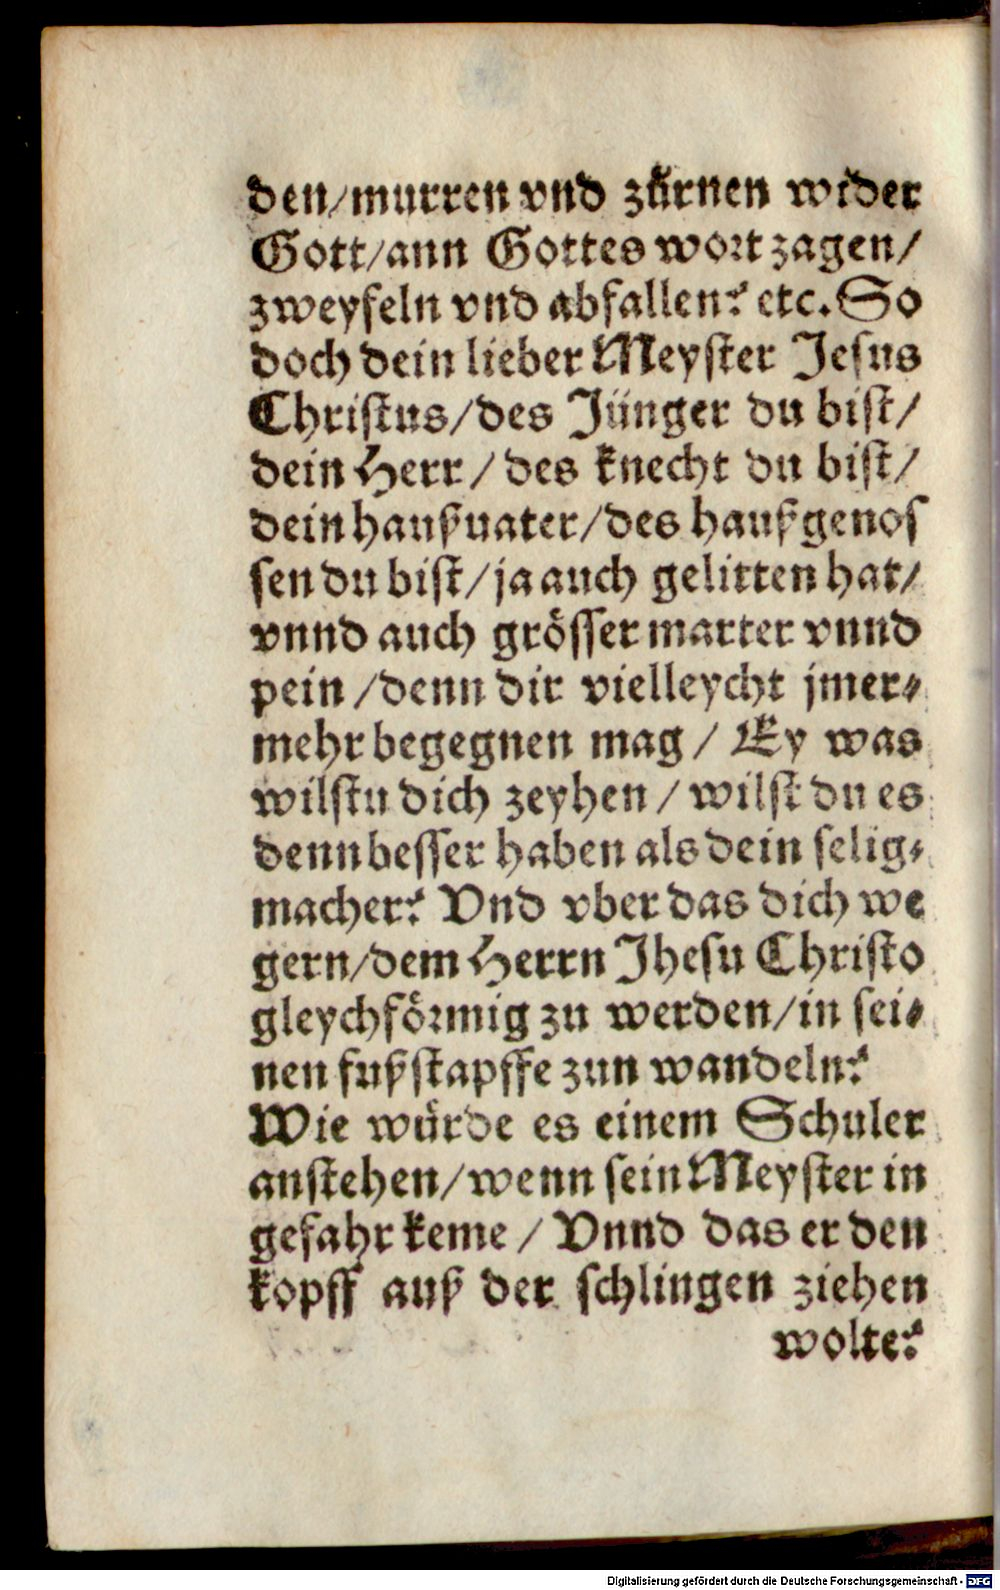 den/murren vnd zürnen wider
Gott/ann Gottes wort zagen/
zweyfeln vnd abfallen? etc. So
doch dein lieber Meyster Jesus
Christus/des Jünger du bist/
dein Herr/des knecht du bist/
dein haußuater/des haußgenos
sen du bist/ja auch gelitten hat/
vnnd auch grösser marter vnnd
pein/denn dir vielleycht jmer-
mehr begegnen mag/Ey was
wilstu dich zeyhen/wilst du es
denn besser haben als dein selig-
macher? Vnd vber das dich we
gern/dem Herrn Jhesu Christo
gleychförmig zu werden/in sei-
nen fußstapffe zun wandeln?
Wie würde es einem Schuler
anstehen/wenn sein Meyster in
gefahr keme/Vnnd das er den
kopff auß der schlingen ziehen
wolte?
Digitalisierung gefördert durch die Deutsche Forschungsgemeinschaft - DFG